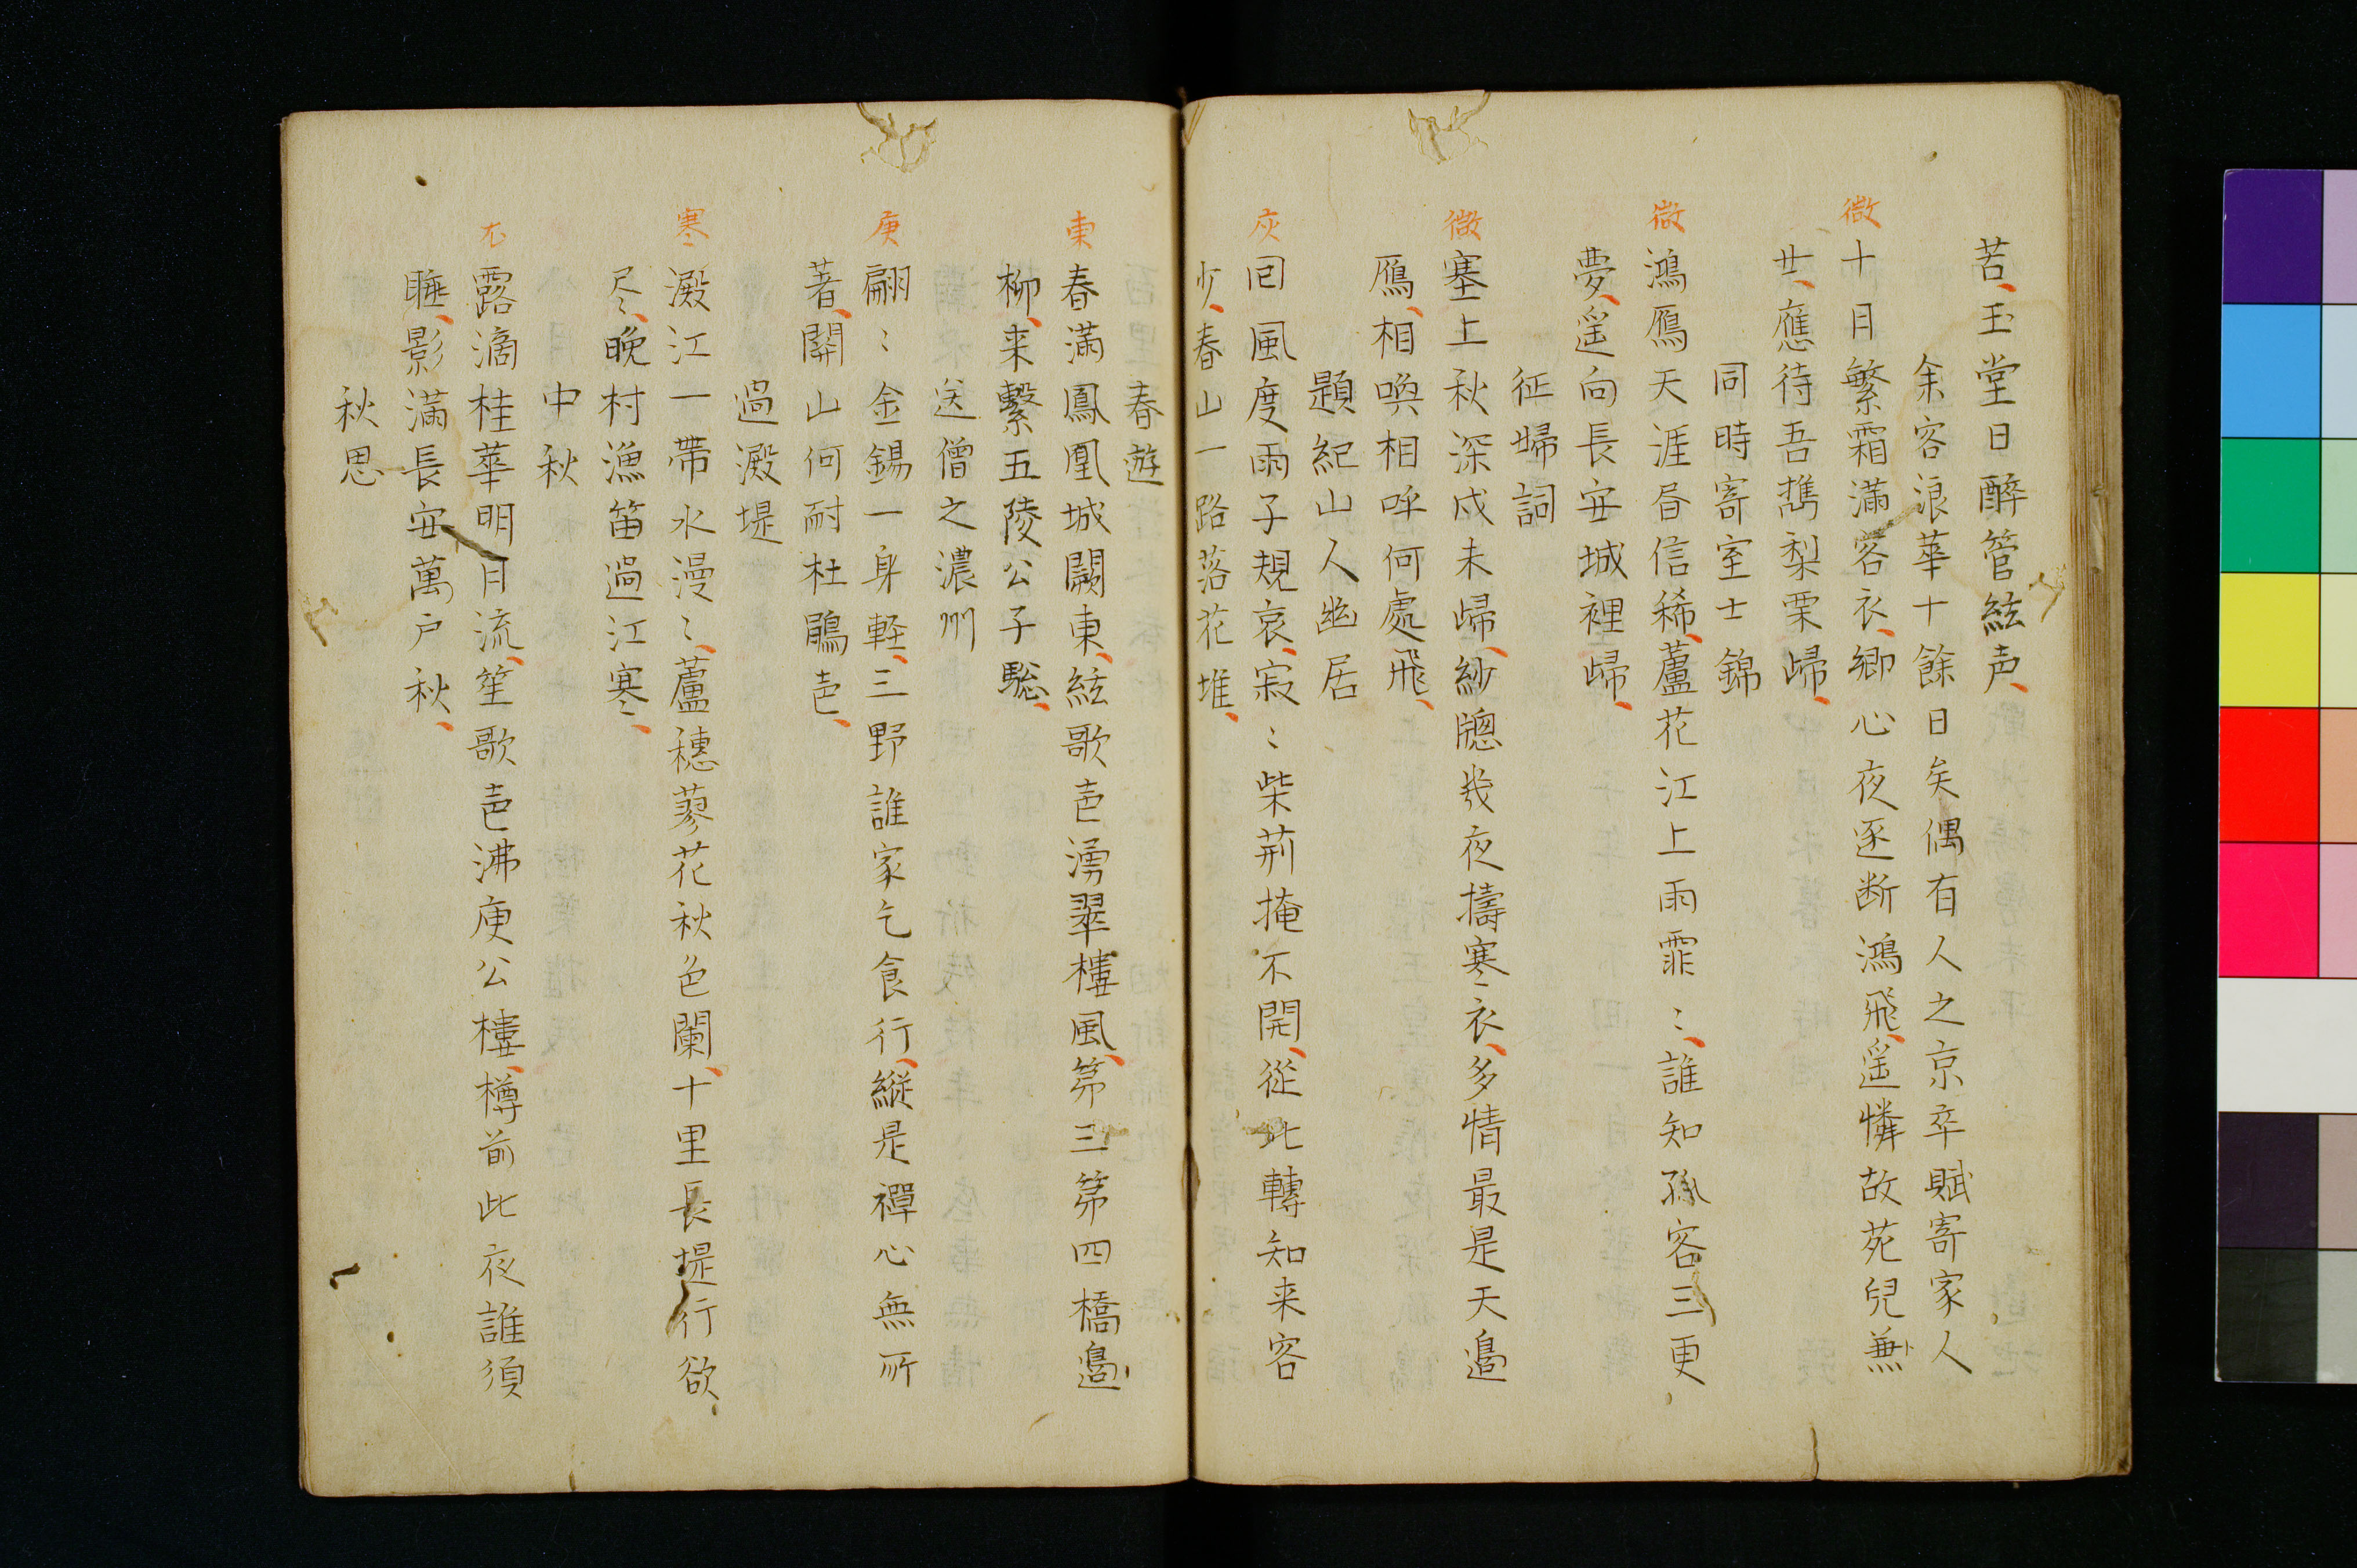 苦玉堂日醉管絃声
余客浪華十餘日矣偶有人之京卒賦寄家人
微
十月繁霜滿客衣鄉心夜逐断鴻飛遥憐故苑兒兼
廿應待吾携梨栗歸
同時寄室士錦
微
鴻鴈天涯昏信稀蘆花江上雨霏〻誰知孤客三更
夢遥向長安城裡歸
征婦詞
微
塞上秋深戍未歸紗牕幾夜擣寒衣多情最是天邉
鴈相喚相呼何處飛
題紀山人幽居
灰
回風度雨子規哀寂〻柴荊掩不開從此轉知来客
少春山一路落花堆
春遊
東
春滿鳳凰城闕東絃歌声湧翠樓風第三第四橋邉
柳来繫五陵公子驄
送僧之濃州
庚
翩〻金錫一身軽三野誰家乞食行縱是禪心無所
著關山何耐杜鵑声
過澱堤
寒
澱江一帶水漫〻蘆穗蓼花秋色闌十里長堤行欲
尽〻晚村漁笛過江寒
中秋
尤
露滴桂華明月流笙歌声沸庾公樓樽前此夜誰須
睡影滿長安萬戸秋
秋思